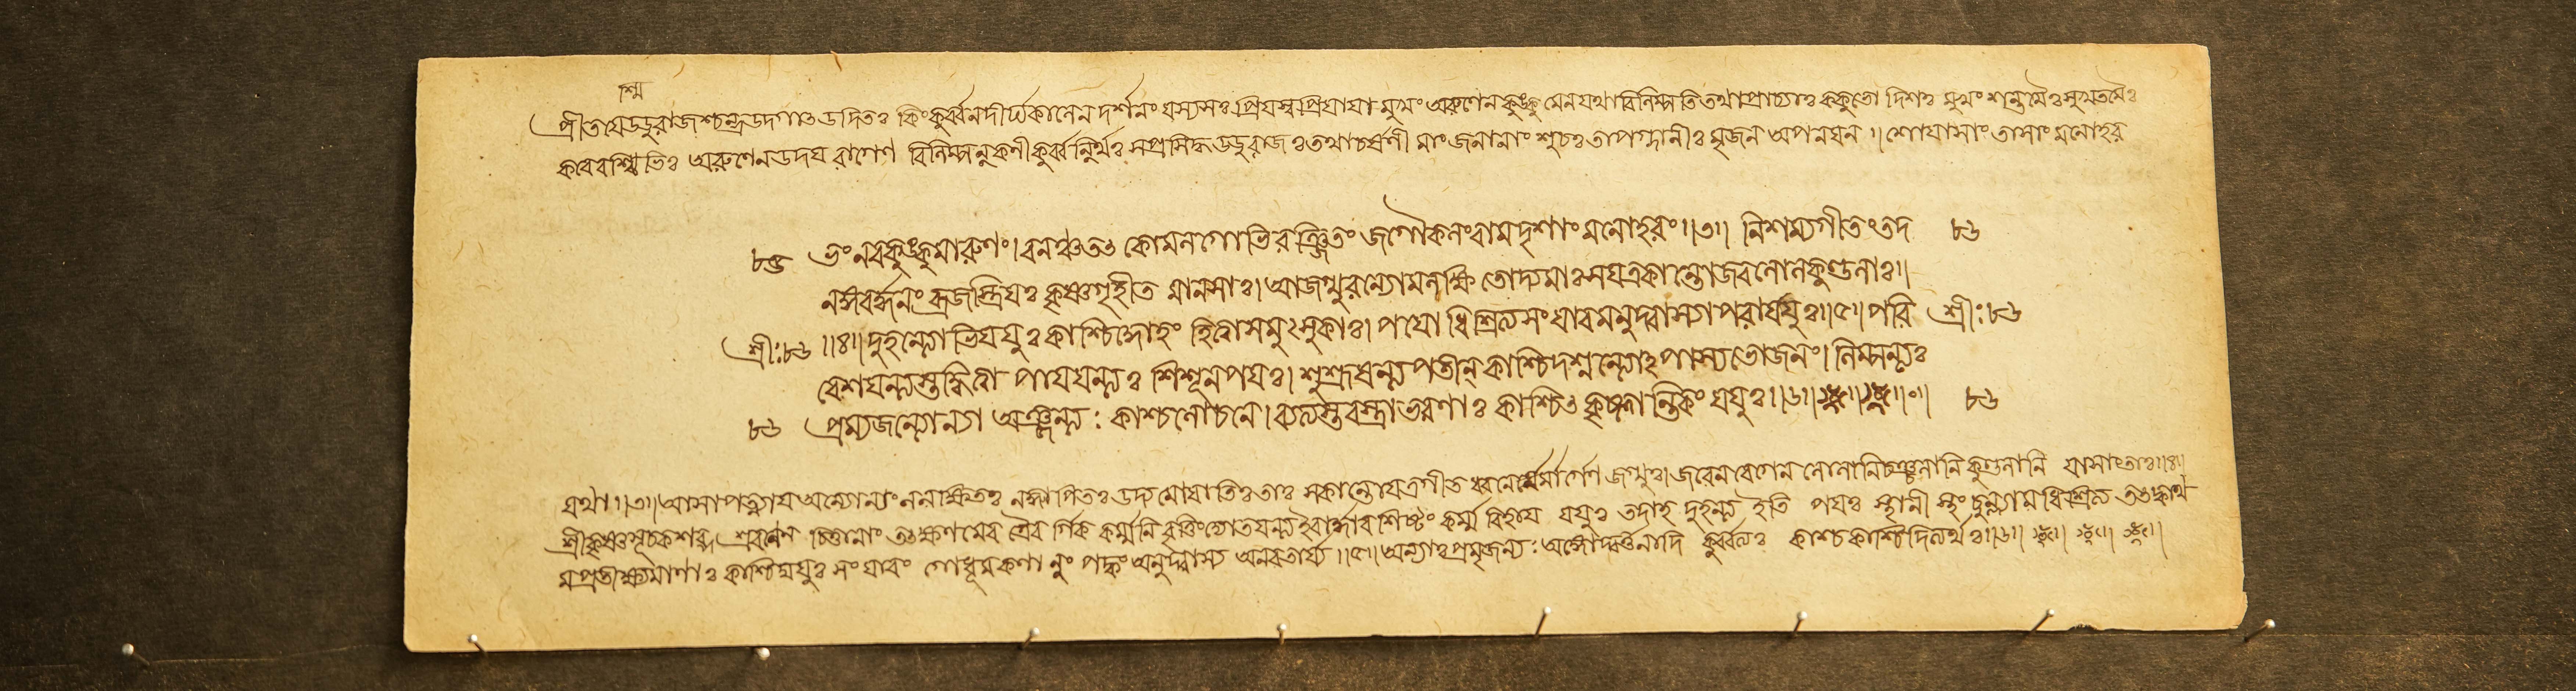 শ্মি
প্রীতযেউডুরাজশ্চন্দ্রউদগাৎউদিতঃ কিংকুর্ব্বনদীর্ঘকালেন দর্শনং যস্যসঃ প্রিযস্বপ্রিযাযা মুখং অরুণেনকুঙ্কুমেনযথাবিলিম্পতিতথাপ্রাচ্যাঃ ককুভো দিশঃ মুখং শন্তমৈঃ সুখতমৈঃ
করৈরশ্মিভিঃ অরুণেনউদয রাগেণ বিলিম্পন্নরুণীকুর্ব্বন্নিত্যর্থঃ সপ্রসিদ্ধউডুরাজঃতথাচর্ষণী নাংজনানাং শুচঃতাপগ্লানীঃ মৃজন অপনয়ন ।। শোযাসাং তাসাং মনোহর
৮৬ ভংনবকুঙ্কুমারুণং।বনঞ্চতৎ কোমলগোভিরঞ্জিতং জগৌকলংবামদৃশাংমনোহরং।।৩।। নিশম্যগীতংতদ ৮৬
নঙ্গবর্দ্ধনং ব্রজস্ত্রিযঃ কৃষ্ণগৃহীত মানসাঃ।আজগ্মুরন্যোন্যমলক্ষি তোদ্যমাঃসযত্রকান্তোজবলোলকুণ্ডলাঃ।।
শ্রীঃ৮৬ ।।৪।।দুহন্ত্যোভিযযুঃ কাশ্চিদ্দোহং হিত্বাসমুৎসুকাঃ। পযো ধিশ্রিত্যসংযাবমনুদ্বাস্যাপরাযযুঃ।।৫।।পরি শ্রীঃ৮৬
বেশযন্ত্যস্তদ্ধিত্বা পাযযন্ত্যঃ শিশূন্পযঃ। শুশ্রূষন্ত্যপতীন্ কাশ্চিদশ্নন্ত্যোঽপাস্যভোজনং।লিম্পন্ত্যঃ
৮৬ প্রমৃজন্ত্যোন্যা অঞ্জন্ত্যঃ কাশ্চলোচনে।ব্যত্যস্তবস্ত্রাভরণাঃ কাশ্চিৎ কৃষ্ণান্তিকং যযুঃ।।৬।। ৮৬
যথা।।৩।।আসাপত্ন্যায অন্যোন্যং নলক্ষিতঃ উদ্যমোযাভিঃতাঃ সকান্তোযত্রগীত ধ্বনের্মার্গেণ জগ্মুঃ।জবেনবেগেন লোলানিচঞ্চলানিকুণ্ডলানি যাসাংতাঃ।।৪।।
শ্রীকৃষ্ণসূচকশব্দ শ্রবণেন চিত্তানাং তৎক্ষণমেব ত্রৈবর্গিক কর্ম্মনিবৃত্তিংদ্যোতযন্ত্যইবার্দ্ধাবশিষ্টং কর্ম্ম বিহায যযুঃ তদাহ দুহন্ত্য ইতি পযঃ স্থালী স্থং চুল্ল্যামধিশ্রিত্য তৎক্বাথ
মপ্রতীক্ষ্যমাণাঃ কাশ্চিদ্যযুঃ সংযাবং গোধূমকণা ন্নং পক্কং অনুদ্বাস্য অনবতার্য্য ।।৫।।অন্যাঃপ্রমৃজন্ত্যঃঅঙ্গোদ্বর্ত্তনাদি কুর্ব্বত্যঃ কাশ্চকাশ্চিদিত্যর্থঃ।।৬।।